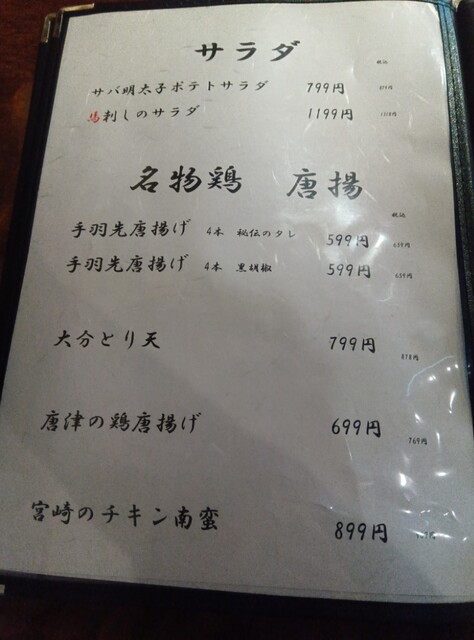 サラダ
税込
サバ明太子ポテトサラダ 799円
馬刺しのサラダ 1199円
名物鶏 唐揚
税込
手羽先唐揚げ 4本 秘伝のタレ 599円 659円
手羽先唐揚げ 4本 黒胡椒 599円 659円
大分とり天 799円 878円
唐津の鶏唐揚げ 699円 769円
宮崎のチキン南蛮 899円